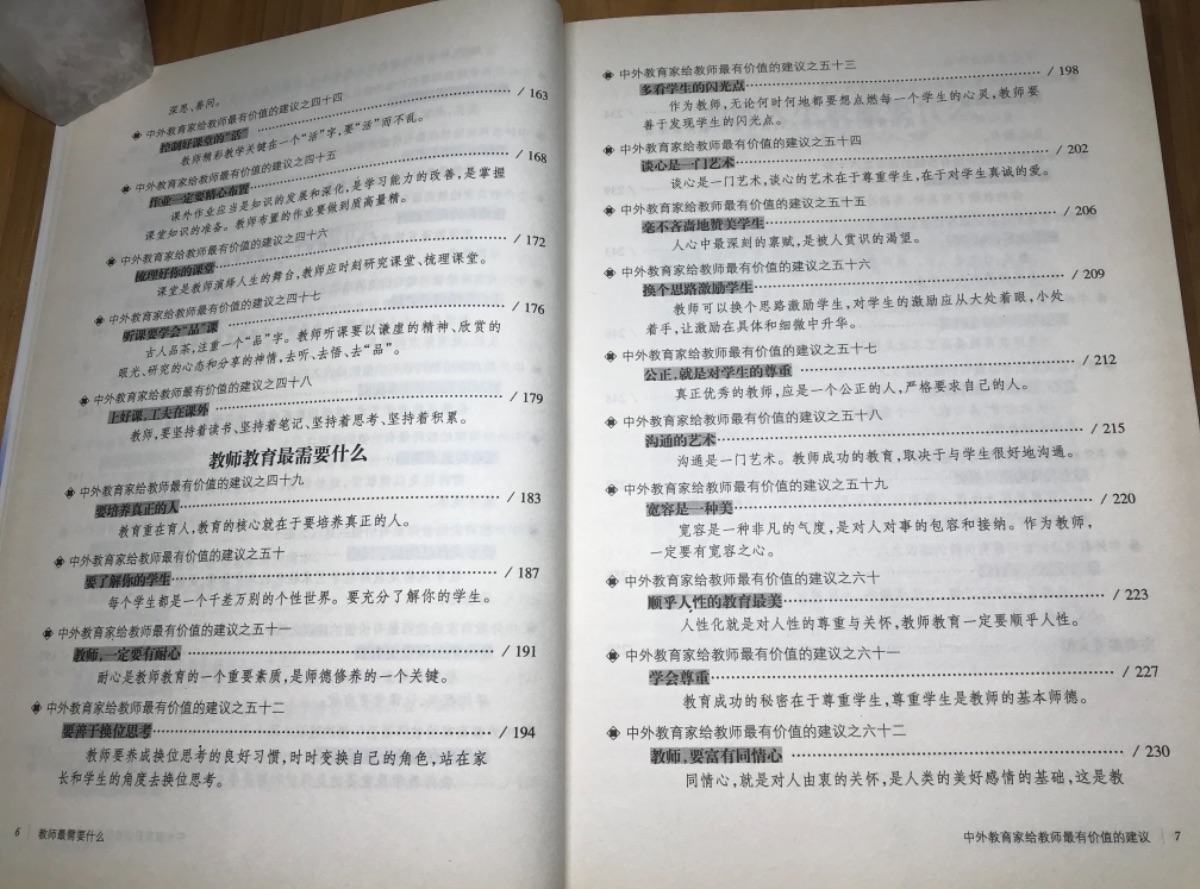 深思、善问。
中外教育家给教师最有价值的建议之四十四
控制好课堂的“活” / 163
教师精彩教学关键在一个“活”字,要“活”而不乱。
中外教育家给教师最有价值的建议之四十五
作业一定要精心布置 / 168
课外作业应当是知识的发展和深化,是学习能力的改善,是掌握
课堂知识的准备。教师布置的作业要做到质高量精。
中外教育家给教师最有价值的建议之四十六
梳理好你的课堂 / 172
课堂是教师演绎人生的舞台,教师应时刻研究课堂、梳理课堂。
中外教育家给教师最有价值的建议之四十七
听课要学会“品”课 / 176
古人品茶,注重一个“品”字。教师听课要以谦虚的精神、欣赏的
眼光、研究的心态和分享的神情,去听、去悟、去“品”。
中外教育家给教师最有价值的建议之四十八
上好课,工夫在课外 / 179
教师,要坚持着读书、坚持着笔记、坚持着思考、坚持着积累。
教师教育最需要什么
中外教育家给教师最有价值的建议之四十九
要培养真正的人 / 183
教育重在育人,教育的核心就在于要培养真正的人。
中外教育家给教师最有价值的建议之五十
要了解你的学生 / 187
每个学生都是一个千差万别的个性世界。要充分了解你的学生。
中外教育家给教师最有价值的建议之五十一
教师,一定要有耐心 / 191
耐心是教师教育的一个重要素质,是师德修养的一个关键。
中外教育家给教师最有价值的建议之五十二
要善于换位思考 / 194
教师要养成换位思考的良好习惯,时时变换自己的角色,站在家
长和学生的角度去换位思考。
6 教师最需要什么
中外教育家给教师最有价值的建议之五十三
多看学生的闪光点 / 198
作为教师,无论何时何地都要想点燃每一个学生的心灵,教师要
善于发现学生的闪光点。
中外教育家给教师最有价值的建议之五十四
谈心是一门艺术 / 202
谈心是一门艺术,谈心的艺术在于尊重学生,在于对学生真诚的爱。
中外教育家给教师最有价值的建议之五十五
毫不吝啬地赞美学生 / 206
人心中最深刻的禀赋,是被人赏识的渴望。
中外教育家给教师最有价值的建议之五十六
换个思路激励学生 / 209
教师可以换个思路激励学生,对学生的激励应从大处着眼,小处
着手,让激励在具体和细微中升华。
中外教育家给教师最有价值的建议之五十七
公正,就是对学生的尊重 / 212
真正优秀的教师,应是一个公正的人,严格要求自己的人。
中外教育家给教师最有价值的建议之五十八
沟通的艺术 / 215
沟通是一门艺术。教师成功的教育,取决于与学生很好地沟通。
中外教育家给教师最有价值的建议之五十九
宽容是一种美 / 220
宽容是一种非凡的气度,是对人对事的包容和接纳。作为教师,
一定要有宽容之心。
中外教育家给教师最有价值的建议之六十
顺乎人性的教育最美 / 223
人性化就是对人性的尊重与关怀,教师教育一定要顺乎人性。
中外教育家给教师最有价值的建议之六十一
学会尊重 / 227
教育成功的秘密在于尊重学生,尊重学生是教师的基本师德。
中外教育家给教师最有价值的建议之六十二
教师,要富有同情心 / 230
同情心,就是对人由衷的关怀,是人类的美好感情的基础,这是教
中外教育家给教师最有价值的建议 7